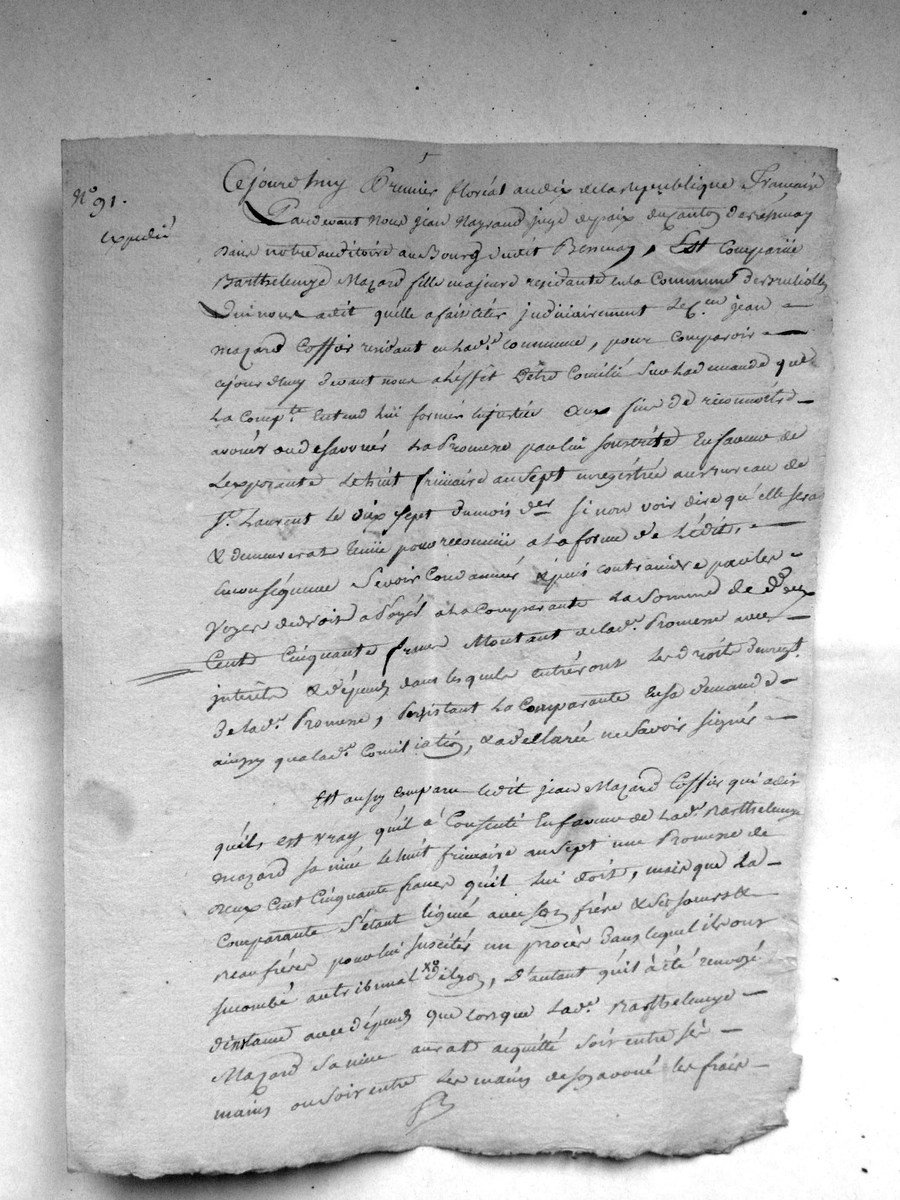 N° 91.
expedié
Cejourdhuy Prémier floréal an dix de la republique francaise
Pardevant Nous jean Nayrand juge de paix du canton de Bessenay
dans notre auditoire au Bourg dudit Bessenay, Est comparüe
Barthelemye Mazard fille majeure residante en la Commune de
Qui nous a dit quélle a fait citér judiciairement le C.en jean
mazard Coffier residant en lad.e commune, pour comparoir
cejourdhuy devant nous a léffèt détre Concilié sur la demande que
la Comp.te Entend lui formér En justice aux fins de reconnoitre
avouér ou desavouér la Promesse par lui souscrite En faveur de
Lexposante le huit frimaire an Sept enregistrée au Bureau de
S.t Laurent le dix Sept du mois d.er si non voir dire qu'elle sera
& demeurerat tenüe pour reconnüe a la forme de lédit,
En conséquence Se voir Condamnér & puis contraindre par les
voyes de droit a Payér a la Comparante la Somme de deux
Cent Cinquante francs Montant de lad.e Promesse avec
interêts & dépens dans lesquels entréront les droits d'enregt.
de lad.e Promesse, Persistant la Comparante En sa demande
ainsy qua lad.e Conciliation, & a declaré ne Savoir signér
Est aussy comparu ledit jean Mazard Coffier qui a dit
quéil est vray quil à Consenti En faveur de lad.e Barthelemye
mazard sa niéce le huit frimaire an sept une Promesse de
deux Cent Cinquante francs quil lui doit, mais que la
Comparante s'étant liguée avec son frére & ses soeurs &
Beaufréres pour lui suscitér un procès dans lequel ils ont
succombé au tribunal de Lyon, d'autant quil à été renvoyé
dinstance avec dépens que lorsque lad.e Barthelemye
Mazard sa niéce aurat acquitté soit entre sés
mains ou soit entre les mains de son avoué les frais